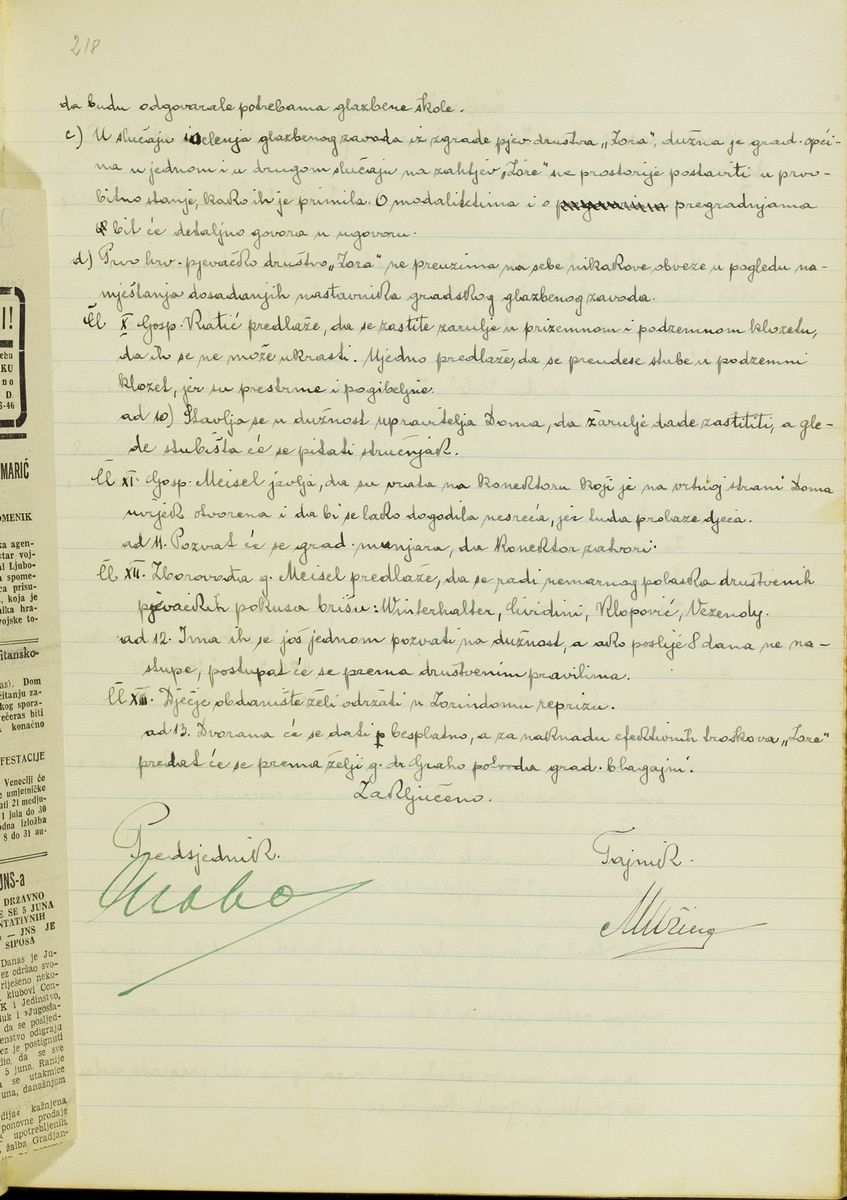 218
da budu odgovarale potrebama glazbene škole.
c) U slučaju iselenja glazbenog zavoda iz zgrade pjev. društva „Zora", dužna je grad. opći-
na u jednom i u drugom slučaju na zahtjev „Zore" sve prostorije postaviti u prvo-
bitno stanje, kako ih je primila. O modalitetima i o pregradnjama
bit će detaljno govora u ugovoru.
d) Prvo hrv. pjevačko društvo „Zora" ne preuzima na sebe nikakove obveze u pogledu na-
mještanja dosadanjih nastavnika gradskog glazbenog zavoda.
Čl X Gosp. Kratić predlaže, da se zastite žarulje u prizemnom i podzemnom klozetu,
da ih se ne može ukrasti. Ujedno predlaže, da se preudese stube u podzemni
klozet, jer su prestrme i pogibeljne.
ad 10) Stavlja se u dužnost upravitelja Doma, da žarulje dade zastititi, a gle-
de stubišta će se pitati stručnjak.
Čl XI. Gosp. Meisel javlja, da su vrata na konektoru koji je na vrtnoj strani Doma
uvijek otvorena i da bi se lako dogodila nesreća, jer tuda prolaze djeca.
ad 11. Pozvat će se grad. munjara, da konektor zatvori.
Čl XII. Zborovođa g. Meisel predlaže, da se radi nemarnog polaska društvenih
pjevačkih pokusa brišu: Winterhalter, Cividini, Klopović, Vezendy.
ad 12. Ima ih se još jednom pozvati na dužnost, a ako poslije 8 dana ne na-
stupe, postupat će se prema društvenim pravilima.
Čl XIII. Dječje obdanište želi održati u Zorindomu reprizu.
ad 13. Dvorana će se dati besplatno, a za naknadu efektivnih troškova „Zore"
predat će se prema želji g. dr Graho potvrda grad. blagajni.
Zaključeno.
Predsjednik.
Tajnik.
I!
ebu
KU
no
D.
6-46
MARIĆ
OMENIK
ka agen-
star voj-
al Ljubo-
a spome-
ca prisu-
, koja je
nika hra-
vojske to-
itansko-
as). Dom
čitanju za-
kog spora-
večeras biti
i konačno
FESTACIJE
Veneciji će
e umjetničke
ati 21 medju-
1 jula do 30
odna izložba
8 do 31 au-
JNS-a
DRŽAVNO
E SE 5 JUNA
NTATIVNIH
— JNS JE
SIPOSA
Danas je Ju-
ez održao svo-
riješeno neko-
klubovi Con-
K i Jedinstvo,
luk i »Jugosla-
da se posljed-
enstvo odigraju
ez je postignuti
dio, da se sve
5 juna. Ranije
a se utakmice
una, današnjom
dija« kažnjena
ponovne prodaje
ć upotrebljenih.
žalba Gradjan-